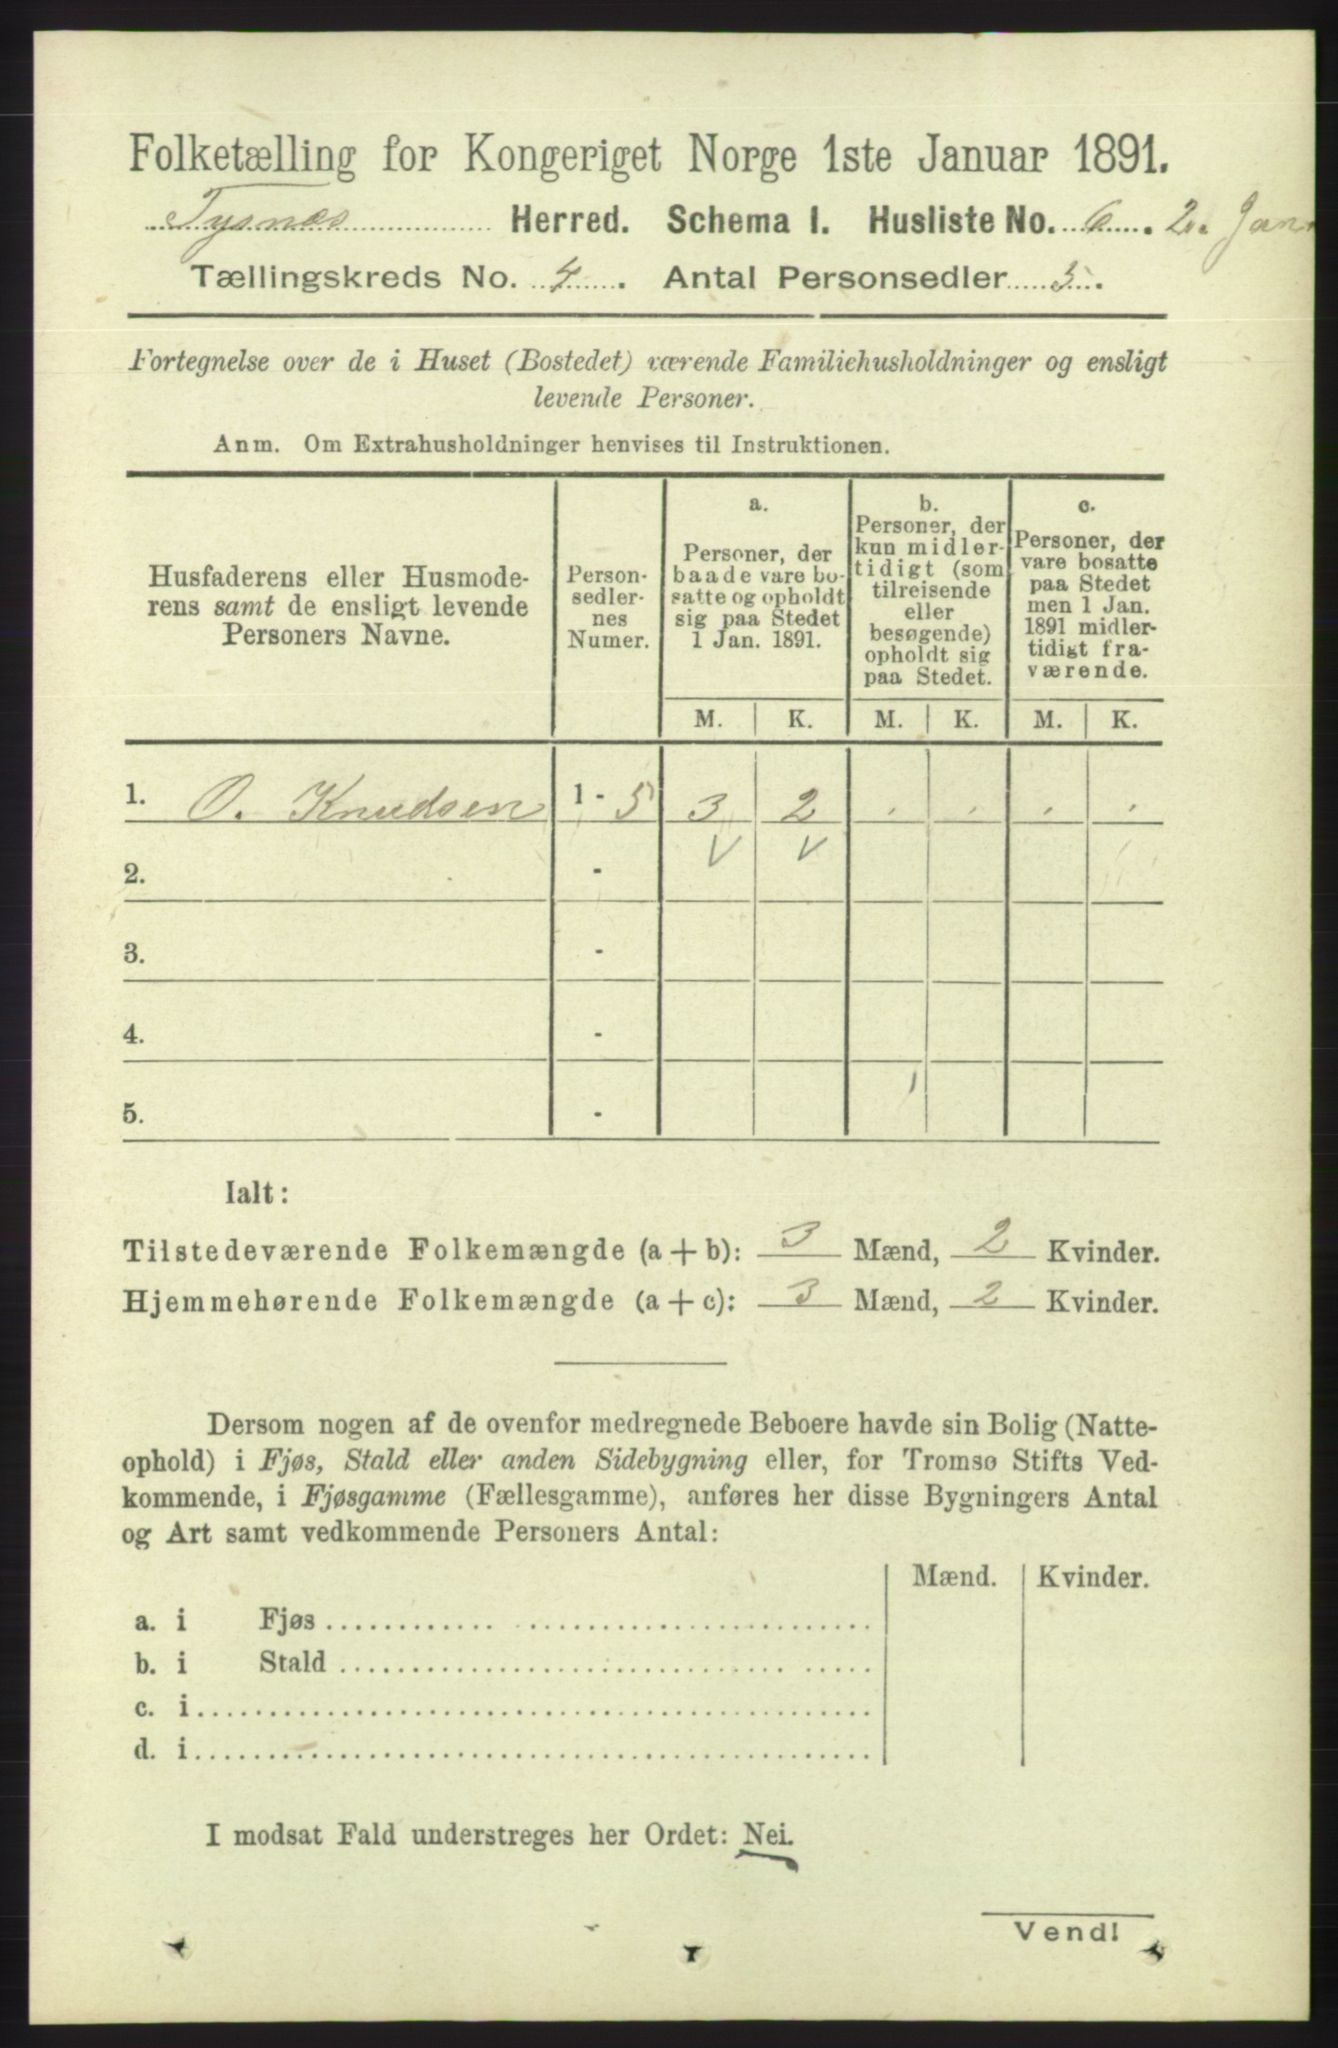 Folketælling for Kongeriget Norge 1ste Januar 1891.
Tysnæs Herred. Schema I. Husliste No. 6. 2. Jan
Tællingskreds No. 4. Antal Personsedler 5.
Fortegnelse over de i Huset (Bostedet) værende Familiehusholdninger og ensligt
levende Personer.
Anm. Om Extrahusholdninger henvises til Instruktionen.
Husfaderens eller Husmode-
rens samt de ensligt levende
Personers Navne.
Person-
sedler-
nes
Numer.
a.
Personer, der
baade vare bo-
satte og opholdt
sig paa Stedet
1 Jan. 1891.
b.
Personer, der
kun midler-
tidigt (som
tilreisende
eller
besøgende)
opholdt sig
paa Stedet.
c.
Personer, der
vare bosatte
paa Stedet
men 1 Jan.
1891 midler-
tidigt fra-
værende.
M. K. M. K. M. K.
1. O. Knudsen 1 - 5 3 2 . . . .
V V
2. -
3. -
4. -
5. -
Ialt:
Tilstedeværende Folkemængde (a + b): 3 Mænd, 2 Kvinder.
Hjemmehørende Folkemængde (a + c): 3 Mænd, 2 Kvinder.
Dersom nogen af de ovenfor medregnede Beboere havde sin Bolig (Natte-
ophold) i Fjøs, Stald eller anden Sidebygning eller, for Tromsø Stifts Ved-
kommende, i Fjøsgamme (Fællesgamme), anføres her disse Bygningers Antal
og Art samt vedkommende Personers Antal:
Mænd. Kvinder.
a. i Fjøs
b. i Stald
c. i
d. i
I modsat Fald understreges her Ordet: Nei.
Vend!